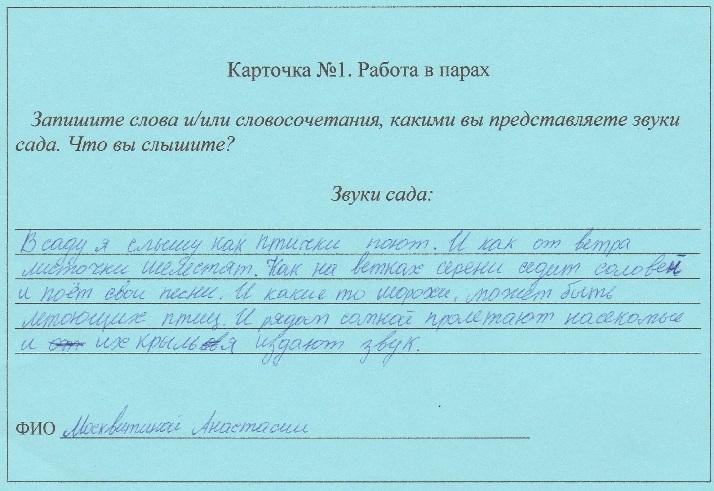 Карточка №1. Работа в парах
Запишите слова и/или словосочетания, какими вы представляете звуки
сада. Что вы слышите?
Звуки сада:
В саду я слышу как птички поют. И как от ветра
листочки шелестят. Как на ветках серени седит соловей
и поёт свои песни. И какие то шорохи, может быть
летоющих птиц. И рядом сомной пролетают насекомые
и их крылья издают звук.
ФИО Москвитиной Анастасии